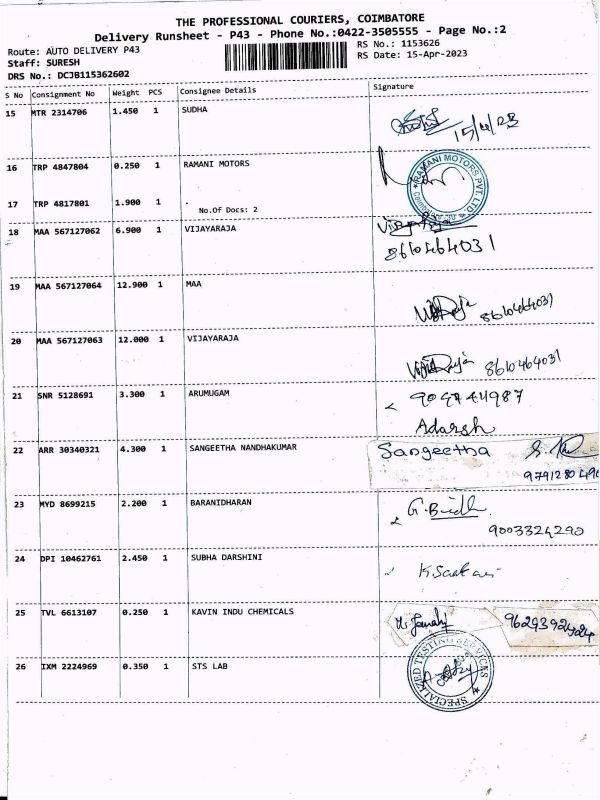 THE PROFESSIONAL COURIERS, COIMBATORE
Delivery Runsheet - P43 - Phone No.:0422-3505555 - Page No.:2
Route: AUTO DELIVERY P43
RS No.: 1153626
Staff: SURESH
RS Date: 15-Apr-2023
DRS No.: DCJB115362602
S No Consignment No Weight PCS Consignee Details Signature
15 MTR 2314706 1.450 1 SUDHA
15/4/23
16 TRP 4847804 0.250 1 RAMANI MOTORS
RAMANI MOTORS PVT. LTD
17 TRP 4817801 1.900 1 .
No.Of Docs: 2
18 MAA 567127062 6.900 1 VIJAYARAJA
8610464031
19 MAA 567127064 12.900 1 MAA
8610464031
20 MAA 567127063 12.000 1 VIJAYARAJA
8610464031
21 SNR 5128691 3.300 1 ARUMUGAM
Adarsh
22 ARR 30340321 4.300 1 SANGEETHA NANDHAKUMAR Sangeetha
23 MYD 8699215 2.200 1 BARANIDHARAN
9003324290
24 DPI 10462761 2.450 1 SUBHA DARSHINI
25 TVL 6613107 0.250 1 KAVIN INDU CHEMICALS
26 IXM 2224969 0.350 1 STS LAB
SPECIALIZED TESTING SERVICES